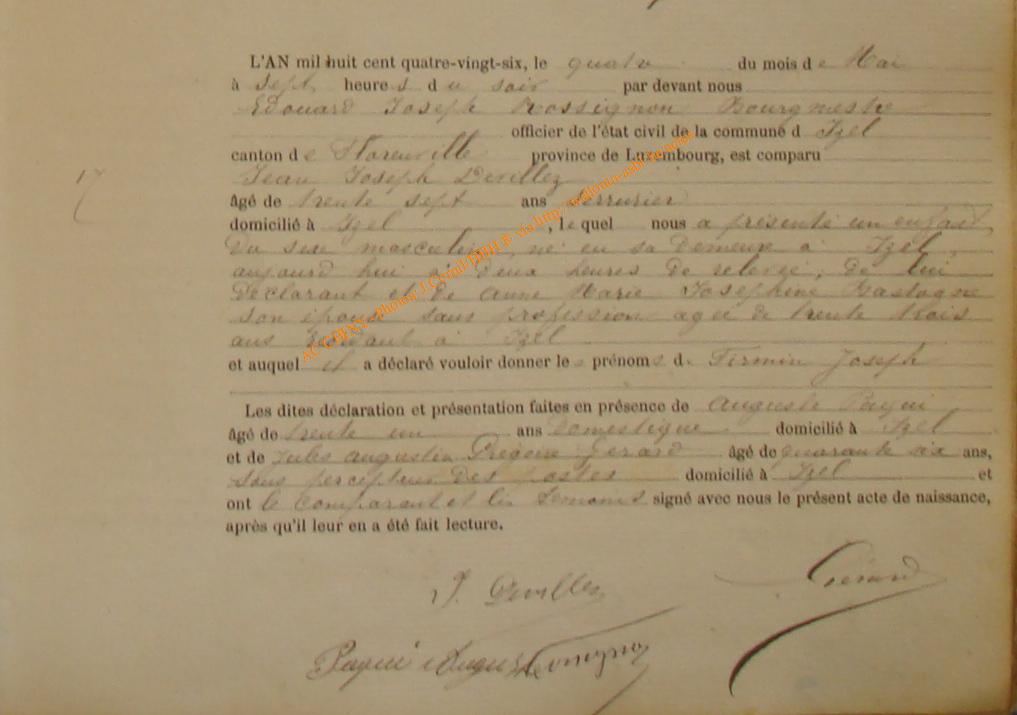 L'AN mil huit cent quatre-vingt-six, le quatre du mois de Mai
à sept heures du soir par devant nous
Edouard Joseph Rossignon Bourgmestre
officier de l'état civil de la commune d Izel
canton de Florenville province de Luxembourg, est comparu
Jean Joseph Devillez
17
âgé de trente sept ans serrurier
domicilié à Izel, lequel nous a présenté un enfant
du sexe masculin, né en sa demeure à Izel
aujourd hui à deux heures de relevée, de lui
déclarant et de Anne Marie Josephine Bastogne
son épouse sans profession agée de trente trois
ans à Izel
et auquel il a déclaré vouloir donner les prénoms d. Firmin Joseph
Les dites déclaration et présentation faites en présence de Auguste Payui
âgé de trente un ans Domestique domicilié à Izel
et de Jules Augustin Grégoire Gerard âgé de quarante six ans,
sous percepteur des postes domicilié à Izel et
ont le comparant et les témoins signé avec nous le présent acte de naissance,
après qu'il leur en a été fait lecture.
J. Devillez
Gérard